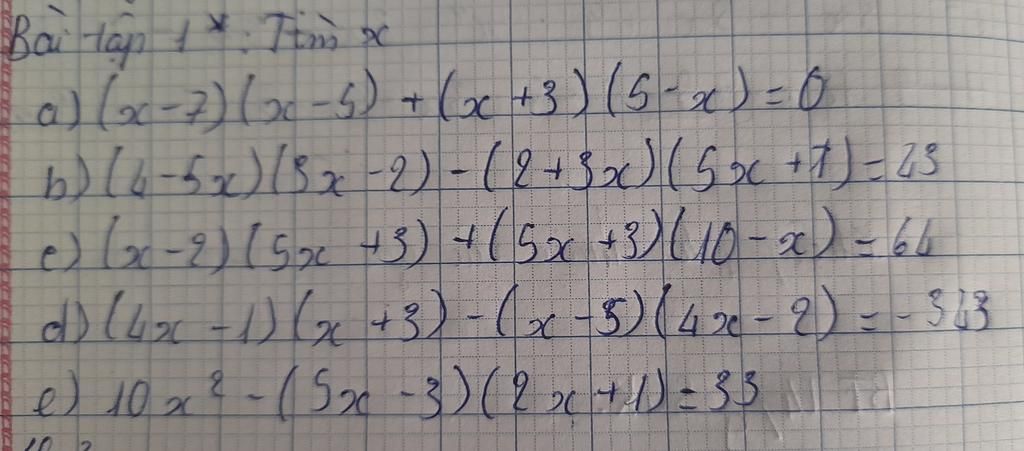 Bài tập 1*: Tìm x
a) (x-7)(x-5) + (x+3)(5-x) = 0
b) (4-5x)(3x-2) - (2+3x)(5x+7) = 43
c) (x-2)(5x+3) + (5x+3)(10-x) = 64
d) (4x-1)(x+3) - (x-5)(4x-2) = -343
e) 10x² - (5x-3)(2x+1) = 33